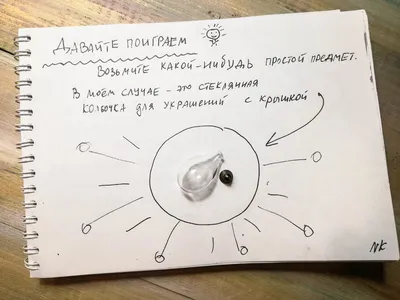 ДАВАЙТЕ ПОИГРАЕМ
ВОЗЬМИТЕ КАКОЙ-НИБУДЬ ПРОСТОЙ ПРЕДМЕТ.
В МОЁМ СЛУЧАЕ - ЭТО СТЕКЛЯННАЯ
КОЛБОЧКА ДЛЯ УКРАШЕНИЙ С КРЫШКОЙ
NK